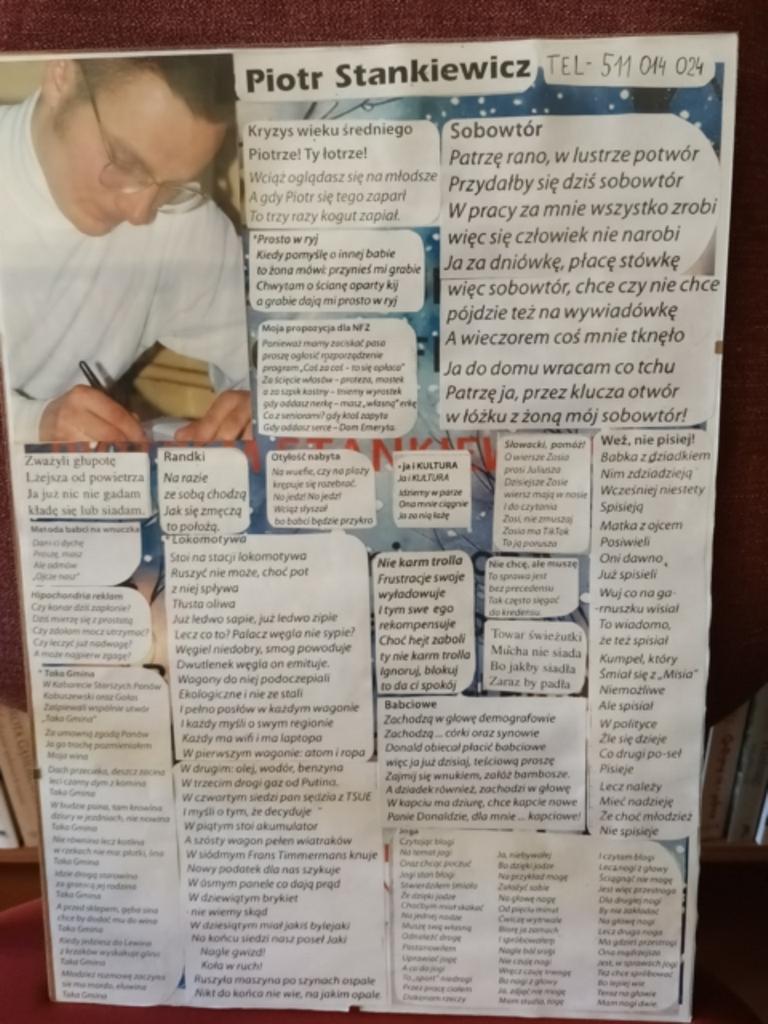 Piotr Stankiewicz TEL- 511 014 024
Kryzys wieku średniego
Piotrze! Ty łotrze!
Wciąż oglądasz się na młodsze
A gdy Piotr się tego zaparł
To trzy razy kogut zapiał.
Sobowtór
Patrzę rano, w lustrze potwór
Przydałby się dziś sobowtór
W pracy za mnie wszystko zrobi
więc się człowiek nie narobi
Ja za dniówkę, płacę stówkę
więc sobowtór, chce czy nie chce
pójdzie też na wywiadówkę
A wieczorem coś mnie tknęło
Ja do domu wracam co tchu
Patrzę ja, przez klucza otwór
w łóżku z żoną mój sobowtór!
*Prosto w ryj
Kiedy pomyślę o innej babie
to żona mówi: przynieś mi grabie
Chwytam o ścianę oparty kij
a grabie dają mi prosto w ryj
Moja propozycja dla NFZ
Ponieważ mamy zaciskać pasa
proszę ogłosić rozporządzenie
program „Coś za coś - to się opłaca"
Za ścięcie włosów - proteza, mostek
a za szpik kostny - tniemy wyrostek
gdy oddasz nerkę - masz „własną" erkę
Co z seniorami? gdy ktoś zapyta
Gdy oddasz serce - Dom Emeryta.
Zważyli głupotę
Lżejsza od powietrza
Ja już nic nie gadam
kładę się lub siadam.
Randki
Na razie
ze sobą chodzą
Jak się zmęczą
to położą.
Otyłość nabyta
Na wuefie, czy na plaży
krępuje się rozebrać.
No jedz! No jedz!
Wciąż słyszał
bo babci będzie przykro
- ja i KULTURA
Ja i KULTURA
Idziemy w parze
Ona mnie ciągnie
Ja za nią łażę
Słowacki, pomóż!
O wiersze Zosia
prosi Juliusza
Dzisiejsze Zosie
wiersz mają w nosie
I do czytania
Zosi, nie zmuszaj
Zosia ma TikTok
To ją porusza
Weź, nie pisiej!
Babka z dziadkiem
Nim zdziadzieją
Wcześniej niestety
Spisieją
Matka z ojcem
Posiwieli
Oni dawno
Już spisieli
Wuj co na ga-
rnuszku wisiał
To wiadomo,
że też spisiał
Kumpel, który
Śmiał się z „Misia"
Niemożliwe
Ale spisiał
W polityce
Źle się dzieje
Co drugi po-seł
Pisieje
Lecz należy
Mieć nadzieję
Że choć młodzież
Nie spisieje
Metoda babci na wnuczka
Dam ci dychę
Proszę, masz
Ale odmów
„Ojcze nasz"
Hipochondria reklam
Czy konar dziś zapłonie?
Dziś mierzę się z prostatą
Czy zdołam mocz utrzymać?
Czy leczyć już nadwagę?
A może najpierw zgagę?
* Lokomotywa
Stoi na stacji lokomotywa
Ruszyć nie może, choć pot
z niej spływa
Tłusta oliwa
Już ledwo sapie, już ledwo zipie
Lecz co to? Palacz węgla nie sypie?
Węgiel niedobry, smog powoduje
Dwutlenek węgla on emituje.
Wagony do niej podoczepiali
Ekologiczne i nie ze stali
I pełno posłów w każdym wagonie
I każdy myśli o swym regionie
Każdy ma wifi i ma laptopa
W pierwszym wagonie: atom i ropa
W drugim: olej, wodór, benzyna
W trzecim drogi gaz od Putina.
W czwartym siedzi pan sędzia z TSUE
I myśli o tym, że decyduje
W piątym stoi akumulator
A szósty wagon pełen wiatraków
W siódmym Frans Timmermans knuje
Nowy podatek dla nas szykuje
W ósmym panele co dają prąd
W dziewiątym brykiet
- nie wiemy skąd
W dziesiątym miał jakiś bylejaki
Na końcu siedzi nasz poseł Jaki
Nagle gwizd!
Koła w ruch!
Ruszyła maszyna po szynach ospale
Nikt do końca nie wie, na jakim opale
Nie karm trolla
Frustracje swoje
wyładowuje
I tym swe ego
rekompensuje
Choć hejt zaboli
ty nie karm trolla
Ignoruj, blokuj
to da ci spokój
Nie chcę, ale muszę
To sprawa jest
bez precedensu
Tak często sięgać
do kredensu.
Towar świeżutki
Mucha nie siada
Bo jakby siadła
Zaraz by padła
* Taka Gmina
W Kabarecie Starszych Panów
Kobuszewski oraz Gołas
Zaśpiewali wspólnie utwór
„Taka Gmina"
Za umowną zgodą Panów
Ja go trochę pozmieniałem
Moja wina
Dach przecieka, deszcz zacina
leci czarny dym z komina
Taka Gmina
W budzie psina, tam krowina
dziury w jezdniach, nie nowina
Taka Gmina
Nie równina lecz kotlina
w rzekach nie ma płotki, lina
Taka Gmina
Idzie drogą staruszka
za granicą jej rodzina
Taka Gmina
A przed sklepem, gęba sina
chce by dodać mu do wina
Taka Gmina
Kiedy jedziesz do Lewina
z krzaków wyskakuje glina
Taka Gmina
Młodzież rozmowę zaczyna
sie ma mordo, eluwina
Taka Gmina
Babciowe
Zachodzą w głowę demografowie
Zachodzą ... córki oraz synowie
Donald obiecał płacić babciowe
więc ja już dzisiaj, teściową proszę
Zajmij się wnukiem, załóż bambosze.
A dziadek również, zachodzi w głowę
W kapciu ma dziurę, chce kapcie nowe
Panie Donaldzie, dla mnie ... kapciowe!
Joga
Czytając blogi
Na temat jogi
Oraz chcąc poczuć
Jogi stan błogi
Stwierdziłem śmiało
Że dzięki jodze
Choćbym miał skakać
Na jednej nodze
Muszę swą własną
Odnaleźć drogę
Postanowiłem
Uprawiać jogę
A co do jogi
To „sport" niedrogi
Przez pracę ciałem
Dokonam rzeczy
Ja, niebywałej
Bo dzięki jodze
Na przykład mogę
Założyć sobie
Na głowę nogę
Od pięciu minut
Ćwiczę wytrwale
Biorę ja zamach
I spróbowałem
Nagle ból srogi
Nie czuję nogi
Wręcz czuję trwogę
Bo nogi z głowy
Ja, zdjąć nie mogę
Mam studia, togę
I czytam blogi
Lecz nogi z głowy
Ściągnąć nie mogę
Jest więc przestroga
Dla drugiej nogi
By nie zakładać
Na głowę nogi
Lecz druga noga
Ma gdzieś przestrogi
Ona mądrzejsza
Jest, w sprawach jogi
Też chce spróbować
Bo lepiej wie
Teraz na głowie
Mam nogi dwie.